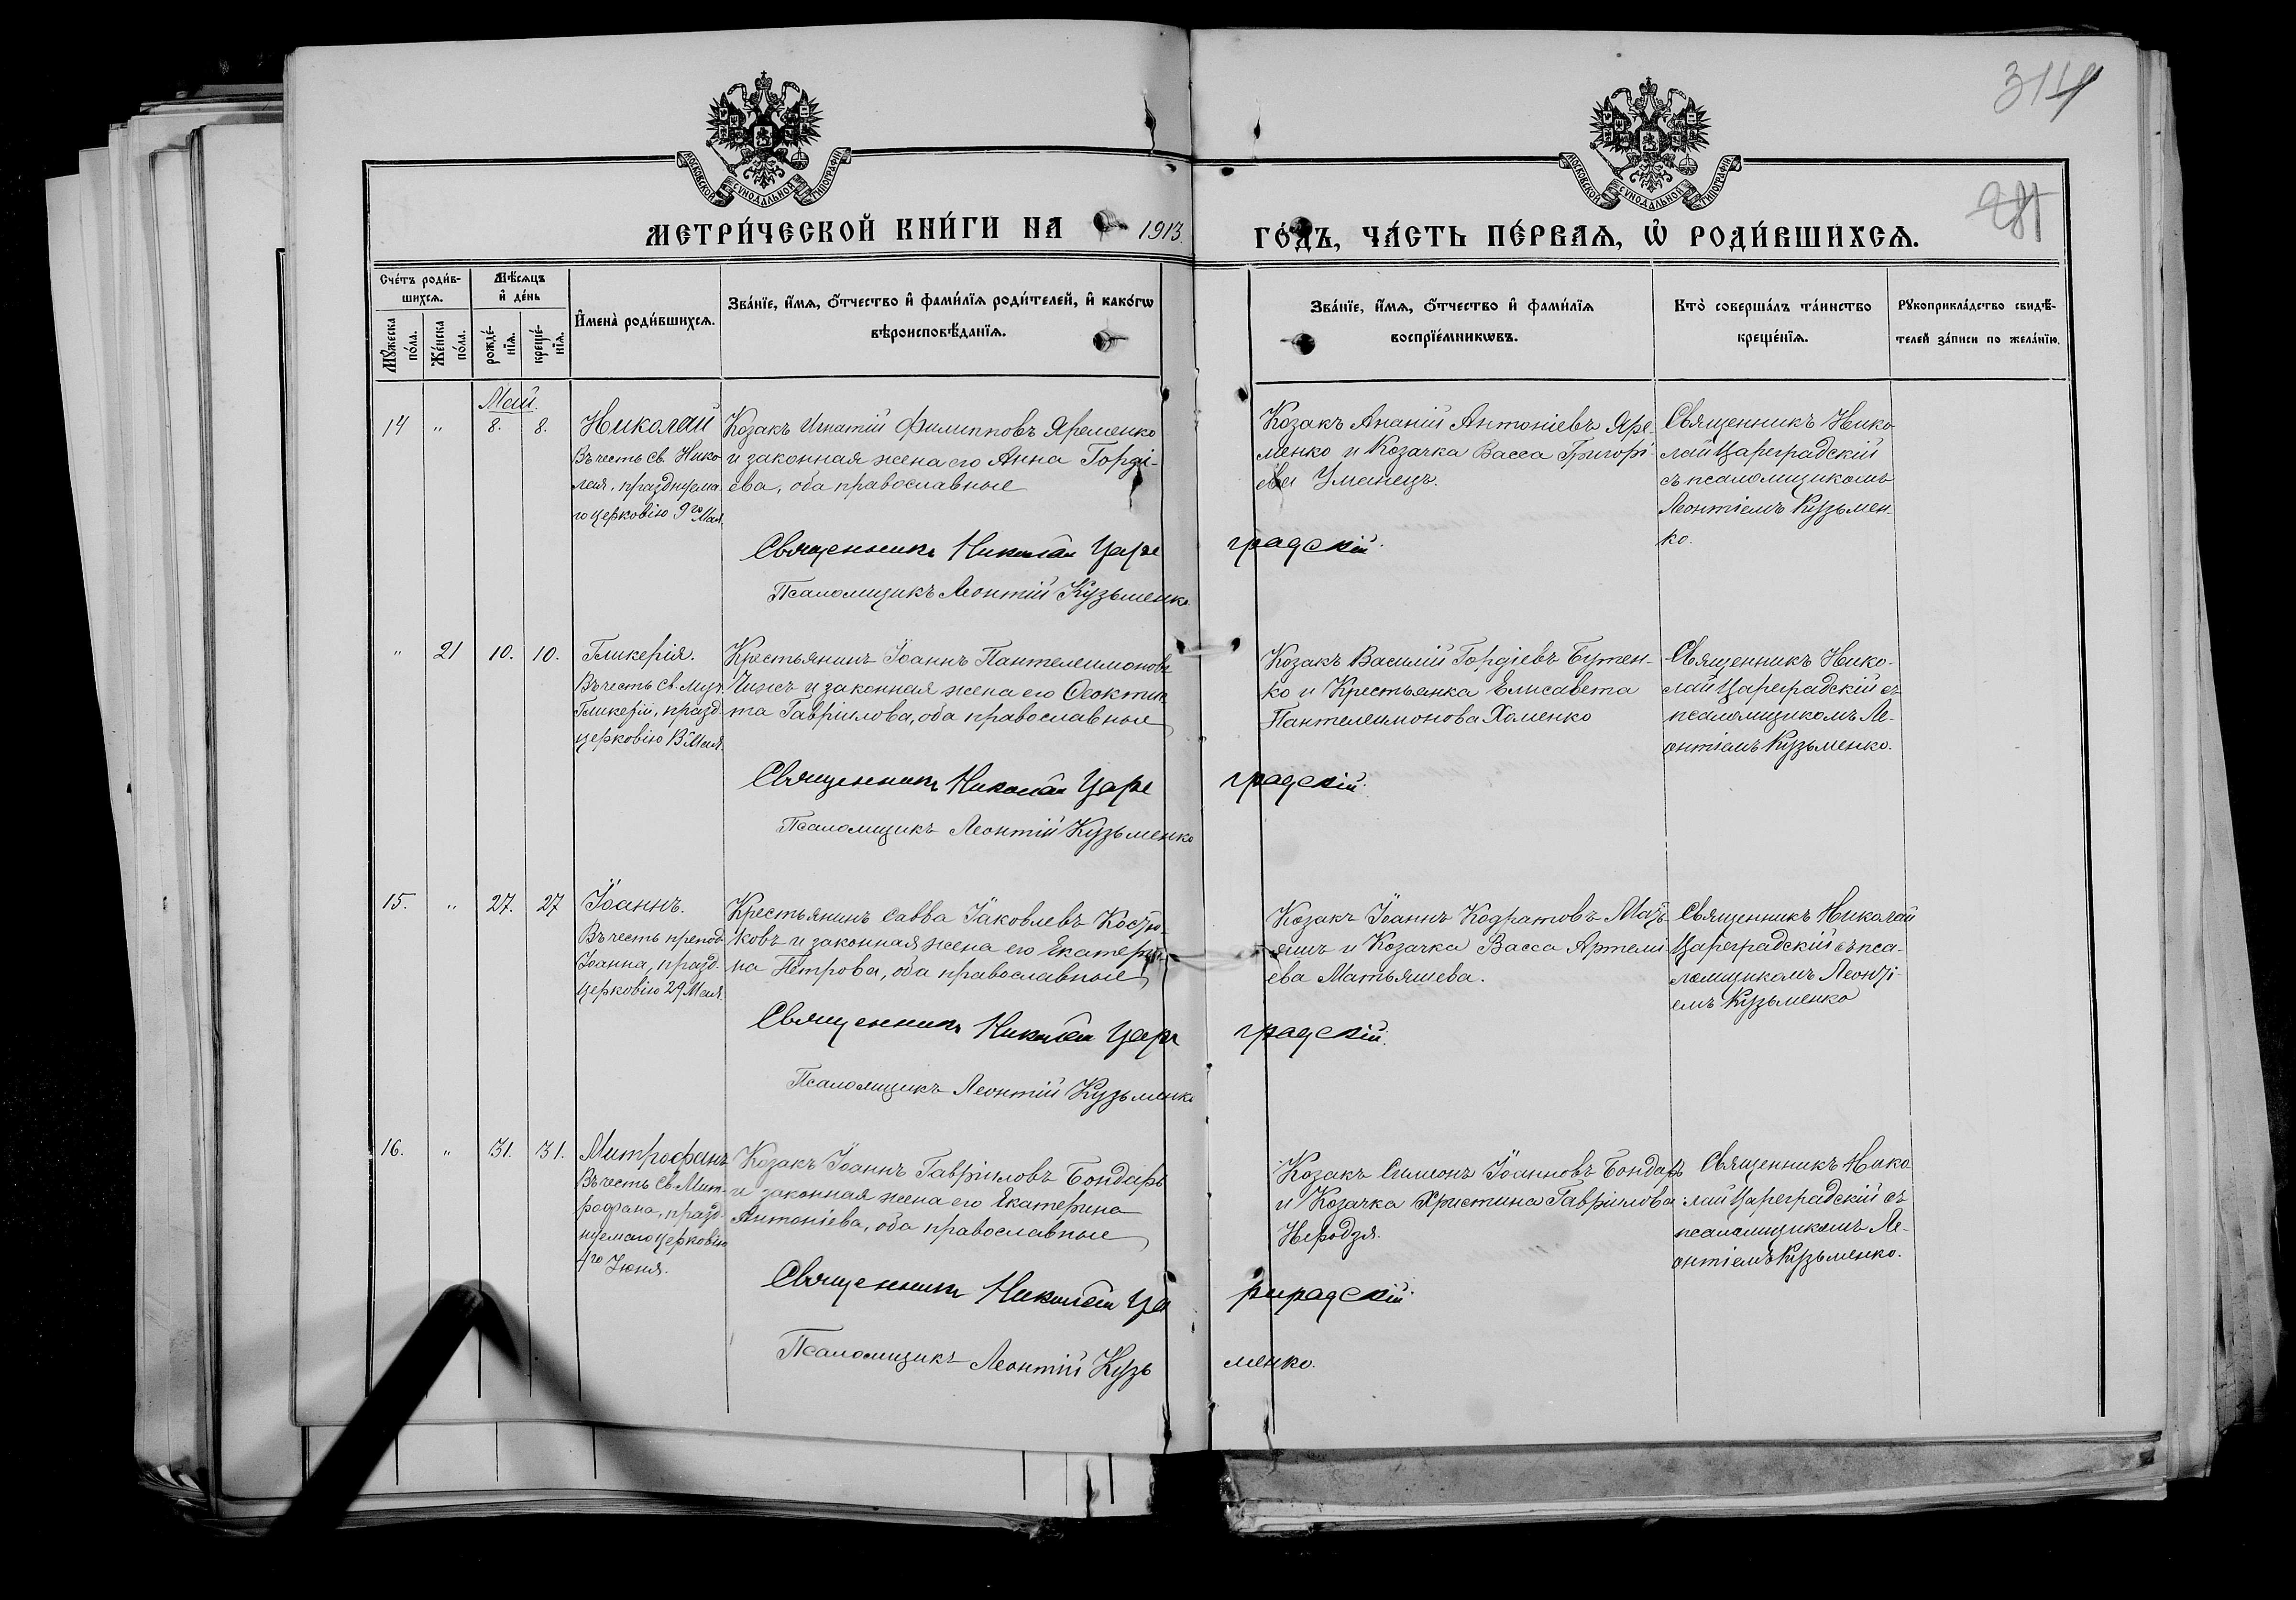 314
МОСКОВСКОЙ СУНОДАЛЬНОЙ ТИПОГРАФІИ
МОСКОВСКОЙ СУНОДАЛЬНОЙ ТИПОГРАФІИ
МЕТРИ́ЧЕСКОЙ КНИ́ГИ НА 1913. ГО́ДЪ, ЧА́СТЬ ПЕ́РВАѦ, Ѡ РОДИ́ВШИХСѦ.
Сче́тъ роди́в-
шихсѧ.
Мꙋ́жеска
по́ла.
Же́нска
по́ла.
Мѣ́сѧцъ
и де́нь
рожде́-
нїѧ.
креще́-
нїѧ.
Имена̀ роди́вшихсѧ.
Зва́нїе, и́мѧ, о́тчество и фами́лїѧ роди́телей, и како́гѡ
вѣроисповѣ́данїѧ.
Зва́нїе, и́мѧ, о́тчество и фами́лїѧ
воспрїе́мникѡвъ.
Кто̀ соверша́лъ та́инство
креще́нїѧ.
Рꙋкоприкла́дство свидѣ́-
телей за́писи по жела́нїю.
Май.
14 " 8. 8.
Николай
Въ честь св. Нико
лая, празднуема
го церковію 9го Мая.
Козакъ Игнатій Филипповъ Яременко
и законная жена его Анна Горді-
ева, оба православные
Козакъ Ананій Антоніевъ Яре
менко и Козачка Васса Григорі-
ева Уманецъ.
Священникъ Нико
лай Цареградскій
съ псаломщикомъ
Леонтіемъ Кузьмен-
ко.
Священникъ Николай Царе градскій.
Псаломщикъ Леонтій Кузьменко
" 21 10. 10.
Гликерія.
Въ честь св. муч.
Гликеріи, празд
церковію 13 Мая.
Крестьянинъ Іоаннъ Пантелеимоновъ
Чижъ и законная жена его Ѳеокти
та Гавріилова, оба православные
Козакъ Василій Гордіевъ Бутен-
ко и Крестьянка Елисавета
Пантелеимонова Хоменко
Священникъ Нико-
лай Цареградскій съ
псаломщикомъ Ле-
онтіемъ Кузьменко.
Священникъ Николай Царе градскій.
Псаломщикъ Леонтій Кузьменко
15. " 27. 27
Іоаннъ.
Въ честь препод
Іоанна, празд.
церковію 29 Мая.
Крестьянинъ Савва Іаковлевъ Костю-
ковъ и законная жена его Екатери-
на Петрова, оба православные
Козакъ Іоаннъ Кодратовъ Мать
яшъ и Козачка Васса Артемі
ева Матьяшева.
Священникъ Николай
Цареградскій съ пса-
ломщикомъ Леонті-
емъ Кузьменко
Священникъ Николай Царе градскій.
Псаломщикъ Леонтій Кузьменко
16. " 31. 31.
Митрофанъ
Въ честь Св. Мит-
рофана, празд-
нуемаго церковію
4го Іюня.
Козакъ Іоаннъ Гавріиловъ Бондарь
и законная жена его Екатерина
Антоніева, оба православные
Козакъ Симеонъ Іоанновъ Бондарь
и Козачка Христина Гавріилова
Неродзя.
Священникъ Нико
лай Цареградскій съ
псаломщикомъ Ле-
онтіемъ Кузьменко.
Священникъ Николай Ца реградскій.
Псаломщикъ Леонтій Кузь менко.